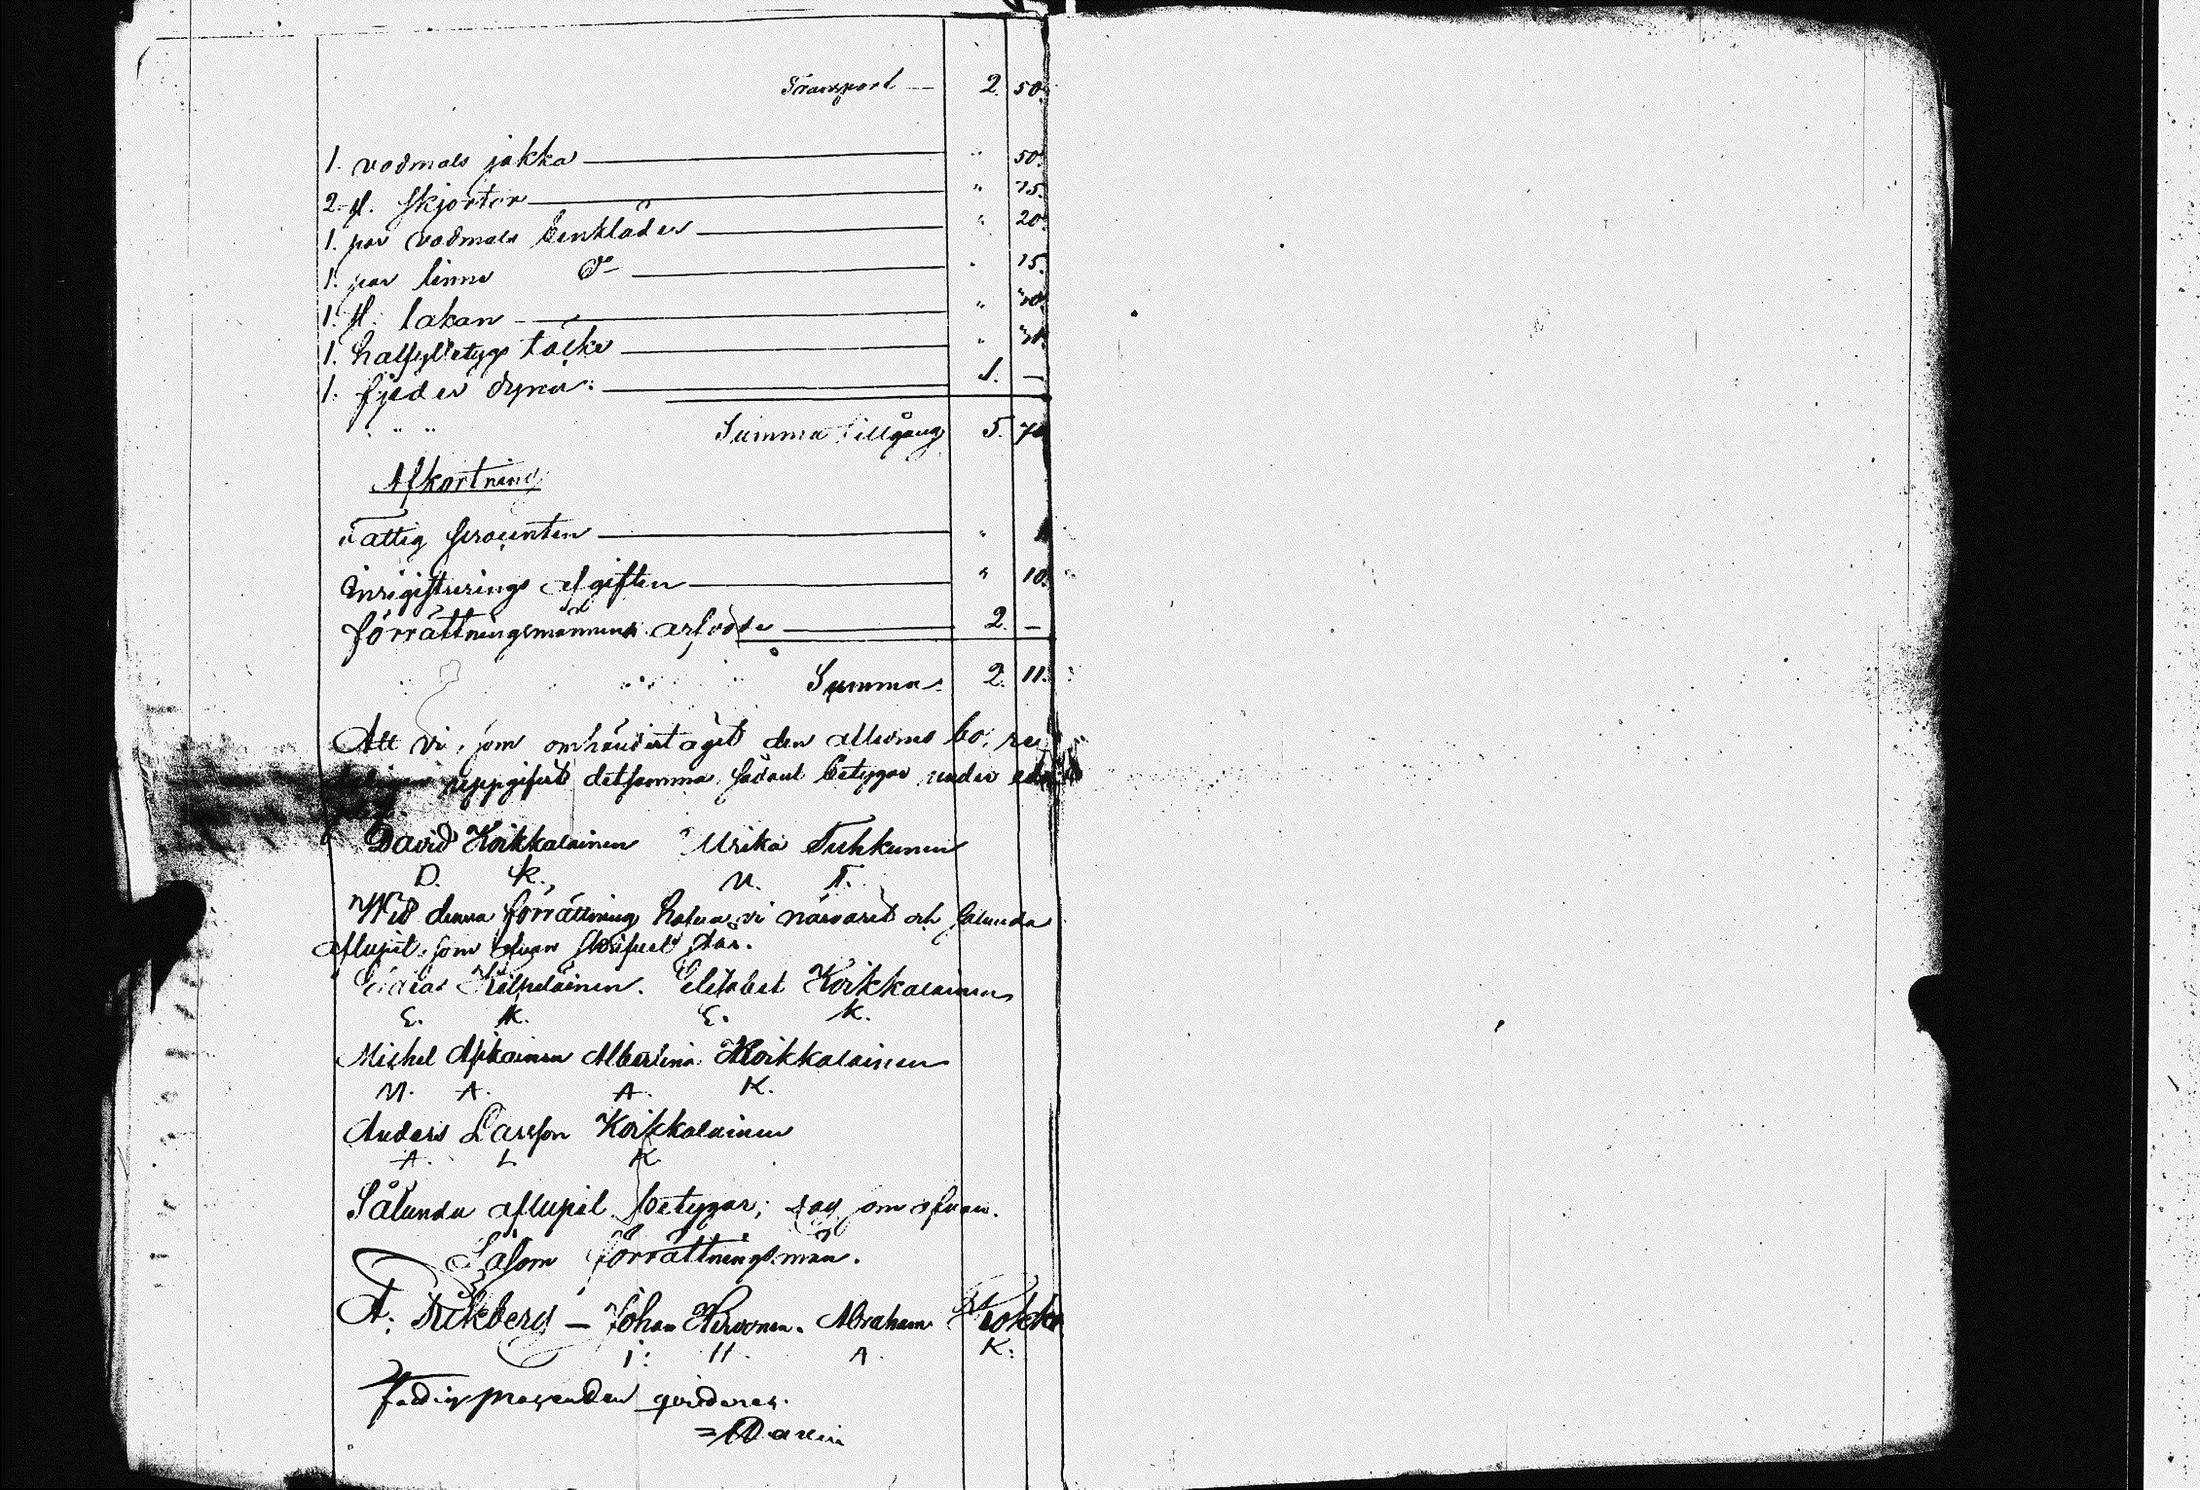 Transport — 2. 50.
1. vadmals jakka — " 50.
2. st. skjortor — " 15.
1. par vadmals benkläder — " 20.
1. par linne do — " 15.
1. st. lakan — "
1. halfylletygs täcke — "
1. fjeder dyna: — 1. —
Summa tillgång 5. 70
Afkortning
Fattig procenten — "
inrigistrerings afgiften — " 10.
förrättningsmännens arfvode — 2. —
Summa. 2. 11.
Att vi, som omhändertagit den aflidnes bo, re
uppgifvit detsamma, sådant betygar under
David Koikkalainen Ulrika Tuhkunen
D. K. U. T.
Wid denna förrättning hafva vi närvarit och sålunda
aflupit, som ofvan skrifvet står.
Kilpeläinen. Elisabet Koikkalainen
E. K. E. K.
Michel Albertina Koikkalainen
M. A. A. K.
Anders Larsson Koikkalainen
A. L. K.
Sålunda aflupit betygar; dag som ofvan.
Såsom förrättningsmän.
A. Johan Hirvonen. Abraham
J: H. A. K:
Fattigprocenten qvitteras.